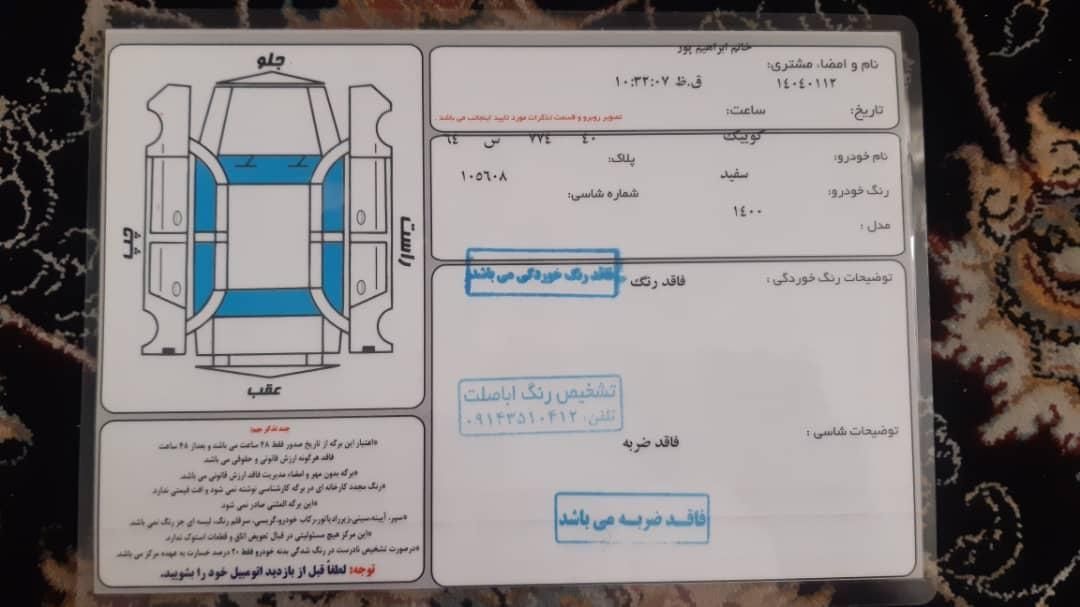 خانم ابراهیم پور
نام و امضاء مشتری:
۱۴۰۴۰۱۱۲ ق.ظ ۱۰:۳۲:۰۷
تاریخ: ساعت:
تصویر روبرو و قسمت تذکرات مورد تایید اینجانب می باشد .
کوییک ۴۰ ۷۷٤ س ٦٤
نام خودرو: پلاک:
سفید ۱۰۵۶۰۸
رنگ خودرو: شماره شاسی:
۱۴۰۰
مدل :
توضیحات رنگ خوردگی :
فاقد رنگ
فاقد رنگ خوردگی می باشد
تشخیص رنگ اباصلت
تلفن: ۰۹۱۴۳۵۱۰۴۱۲
توضیحات شاسی :
فاقد ضربه
فاقد ضربه می باشد
جلو
راست
چپ
عقب
چند تذکر مهم:
*اعتبار این برگه از تاریخ صدور فقط ۴۸ ساعت می باشد و بعداز ۴۸ ساعت
فاقد هرگونه ارزش قانونی و حقوقی می باشد.
*برگه بدون مهر و امضاء مدیریت فاقد ارزش قانونی می باشد.
*رنگ مجدد کارخانه ای در برگه کارشناسی نوشته نمی شود و افت قیمتی ندارد.
*این برگه المثنی صادر نمی شود.
*سپر، آیینه،سینی،زیررادیاتور،رکاب خودرو،گریسی، سرقلم رنگ، لیسه ای جز رنگ نمی باشد.
*این مرکز هیچ مسئولیتی در قبال تعویض اتاق و قطعات استوک ندارد.
*درصورت تشخیص نادرست در رنگ شدگی بدنه خودرو فقط ۲۰ درصد خسارت به عهده مرکز می باشد.
توجه: لطفاً قبل از بازدید اتومبیل خود را بشویید.